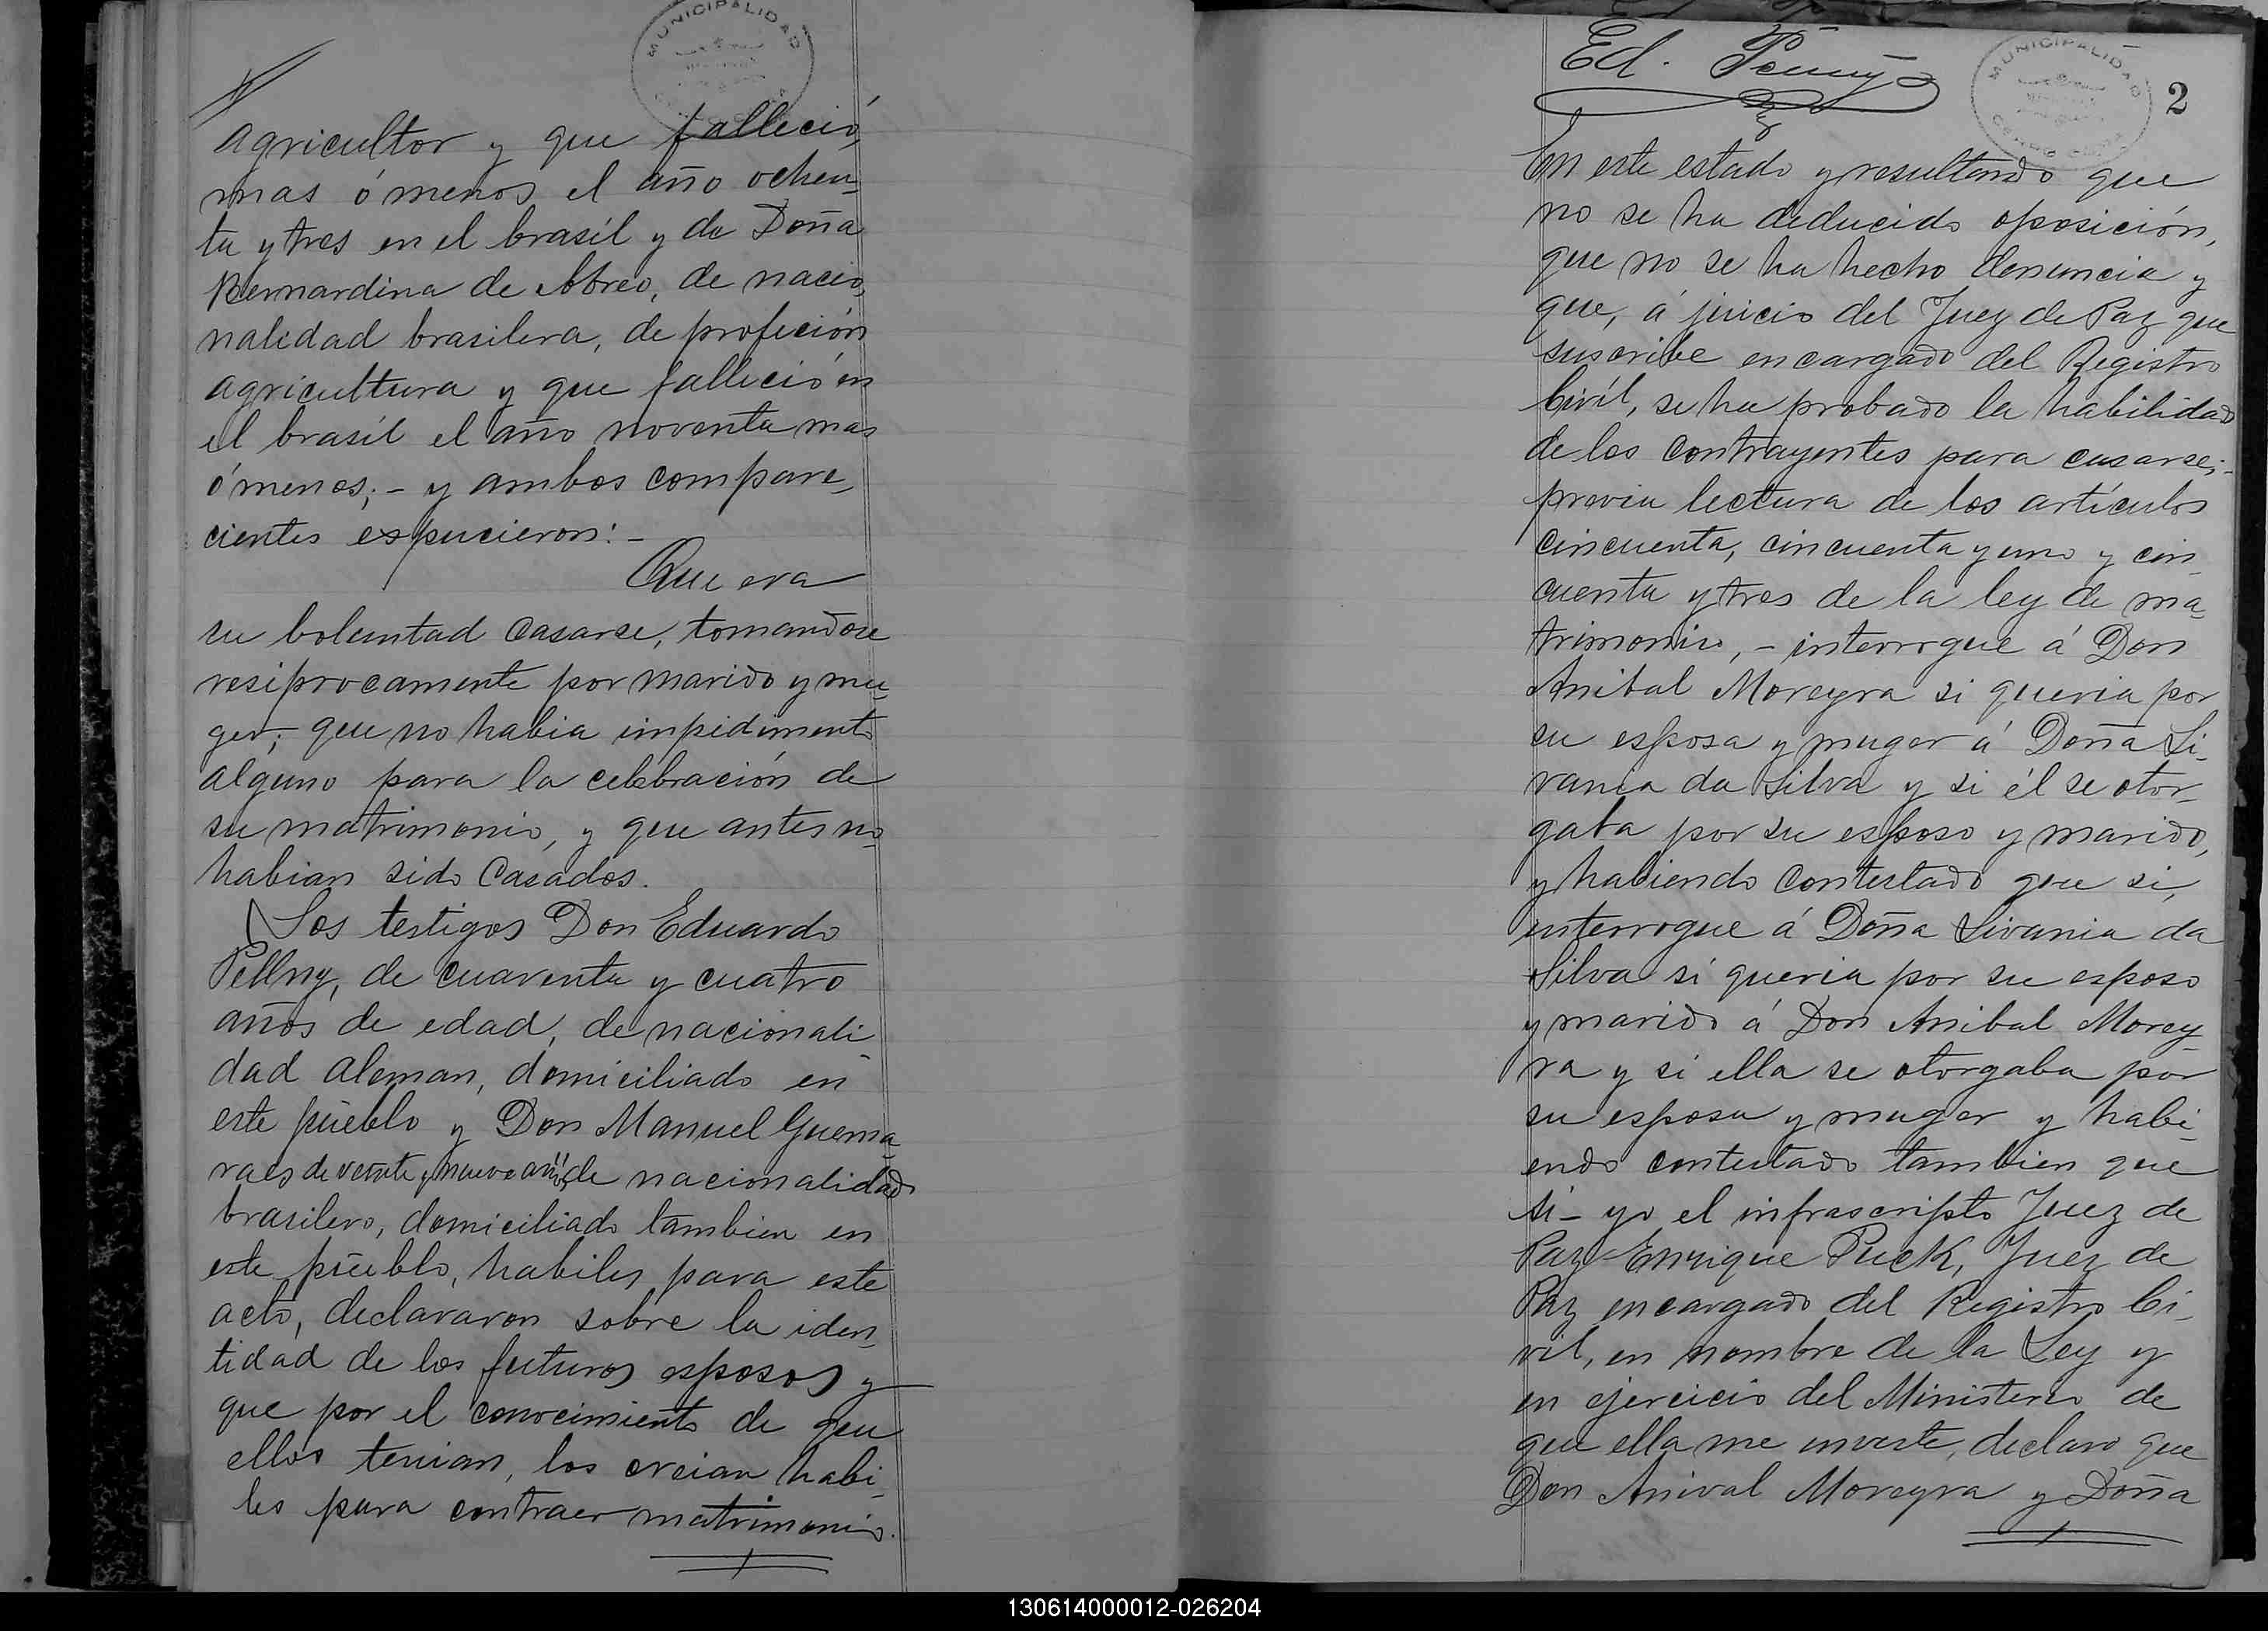 MUNICIPALIDAD
agricultor y que fallecio,
mas ó menos el año ochen-
ta y tres en el brasil y de Doña
Bernardina de Abreo, de nacio-
nalidad brasilera, de profeción
agricultura y que falleció en
el brasil el año noventa mas
ó menos; - y ambos compare-
cientes espucieron: -
Que era
su boluntad casarse, tomandose
resiprocamente por marido y mu-
ger; que no habia impidimento
alguno para la celebración de
su matrimonio, y que antes no
habian sido Casados.
Los testigos Don Eduardo
Pellny, de cuarenta y cuatro
años de edad, de nacionali
dad aleman, domiciliado en
este pueblo y Don Manuel Guema-
raes de veinte y nueve años de nacionalidad
brasilero, domiciliado tambien en
este pueblo, habiles para este
acto, declararon sobre la iden-
tidad de los futuros esposos y
que por el conocimiento de que
ellos tenian, los creian habi-
les para contraer matrimonio.
Ed. Penny
MUNICIPALIDAD
2
En este estado y resultando que
no se ha deducido oposición,
que no se ha hecho denuncia y
que, á juicio del Juez de Paz que
suscribe encargado del Registro
Civíl, se ha probado la habilidad
de los contrayentes para casarse; -
previa lectura de los artículos
cincuenta, cincuenta y uno y cin-
cuenta y tres de la ley de ma-
trimonio, - interrogue á Don
Anibal Moreyra si queria por
su esposa y muger á Doña Li-
vania da Silva y si él se otor-
gaba por su esposo y marido,
y habiendo contestado que si,
interrogue á Doña Livania da
Silva si queria por su esposo
y marido á Don Anibal Morey
ra y si ella se otorgaba por
su esposa y muger y habi-
endo contestado tambien que
si - yo el infrascripto Juez de
Paz Enrique Puck, Juez de
Paz encargado del Registro Ci-
vil, en nombre de la Ley y
en ejercicio del Ministerio de
que ella me inviste, declaro que
Don Anival Moreyra y Doña
130614000012-026204